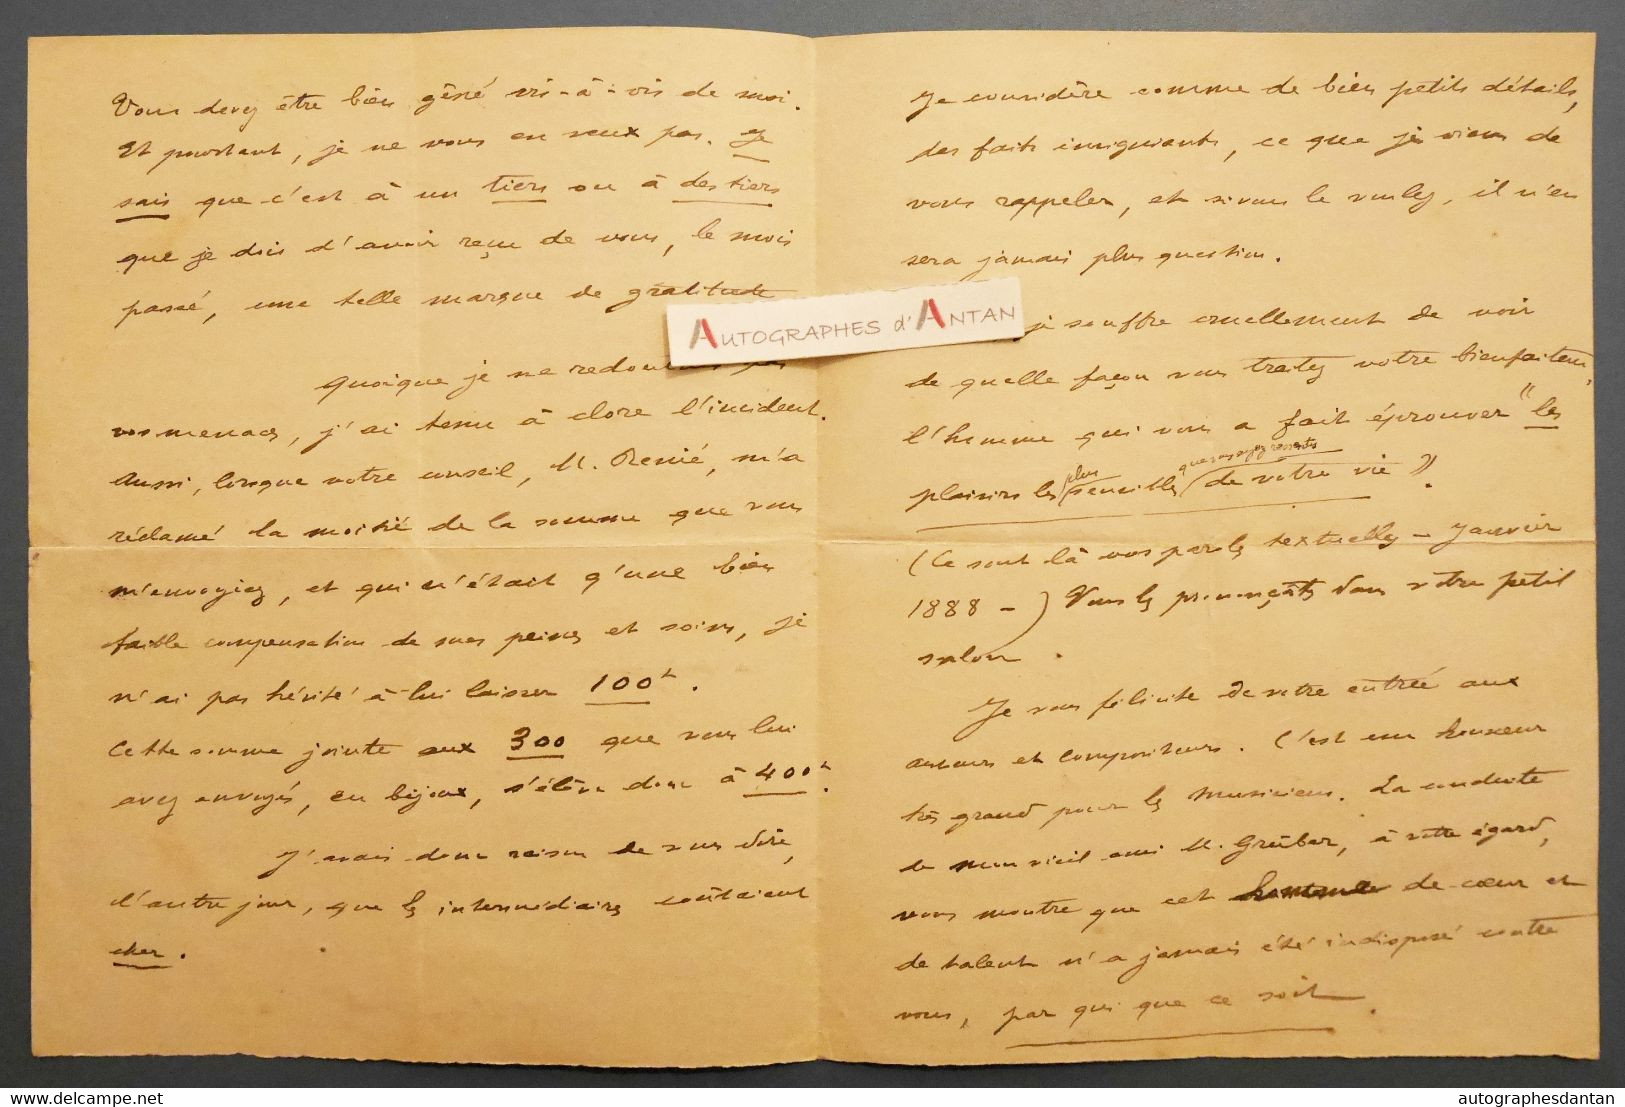 Vous devez être bien gêné vis-à-vis de moi.
Et pourtant, je ne vous en veux pas. Je
sais que c'est à un tiers ou à des tiers
que je dois d'avoir reçu de vous, le mois
passé, une telle marque de gratitude
quoique je ne redoutais pas
vos menaces, j'ai tenu à clore l'incident.
Aussi, lorsque votre conseil, M. Renié, m'a
réclamé la moitié de la somme que vous
m'envoyiez, et qui n'était q'une bien
faible compensation de mes peines et soins, je
n'ai pas hésité à lui laisser 100f.
Cette somme jointe aux 300 que vous lui
avez envoyés, en bijoux, s'élève donc à 400f.
J'avais donc raison de vous dire,
l'autre jour, que les intermédiaires coûtaient
cher.
Je considère comme de bien petits détails,
des faits insignifiants, ce que je viens de
vous rappeler, et si vous le voulez, il n'en
sera jamais plus question.
je souffre cruellement de voir
de quelle façon vous traitez votre bienfaiteur,
l'homme qui vous a fait éprouver "les
plus que vous ayez ressentis
plaisirs les (sensibles (de votre vie".
(Ce sont là vos paroles textuelles - Janvier
1888 -) Vous les prononçâtes dans votre petit
salon.
Je vous félicite de votre entrée aux
auteurs et compositeurs. C'est un honneur
très grand pour les musiciens. La conduite
de mon vieil ami M. Grüber, à votre égard,
vous montre que cet homme de cœur et
de talent n'a jamais été indisposé contre
vous, par qui que ce soit.
AUTOGRAPHES d'ANTAN
delcampe.net
autographesdantan